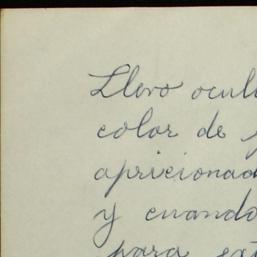 Llevo ocul
color de
apricionad
y cuando
para